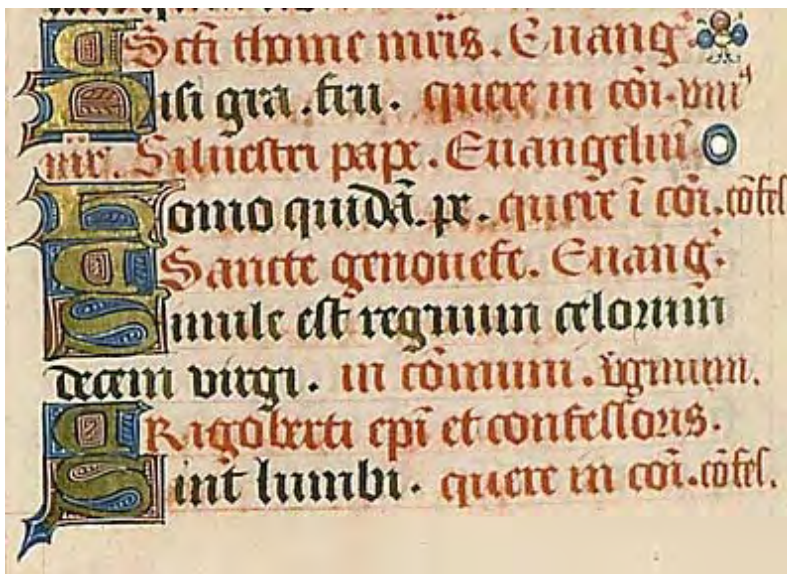 Scti thome mris. Euang.
Nisi gra. fru. quere in coi. uni
us. Siluestri pape. Euangeliu
Homo quidā. pe. quere ī coi. cōfes
Sancte genouefe. Euang.
Simile est regnum celorum
decem virgi. in cōmuni. uginum.
Rigoberti epi et confessoris.
Sint lumbi. quere in coi. cōfes.